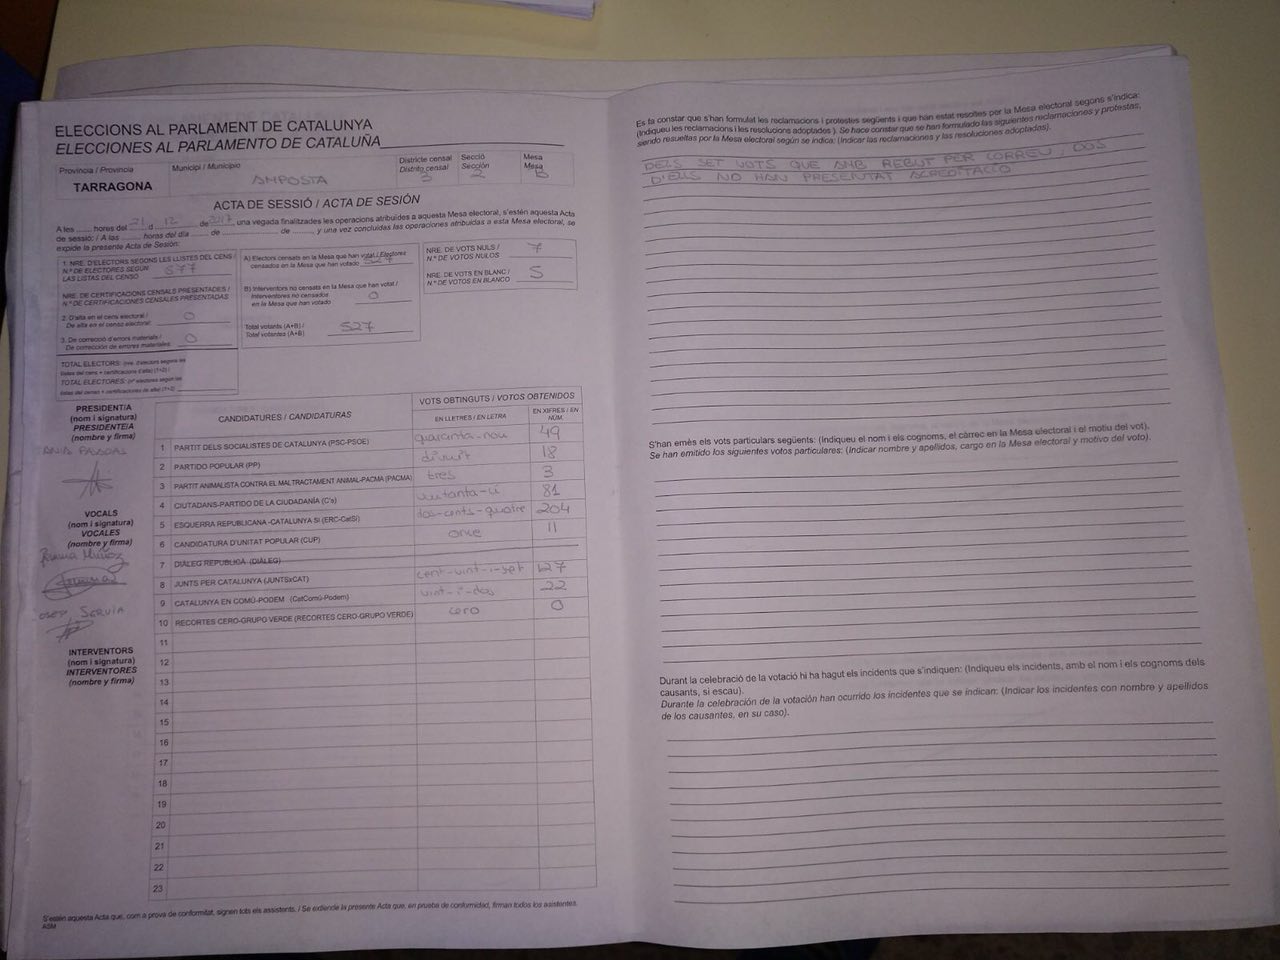 ELECCIONS AL PARLAMENT DE CATALUNYA
ELECCIONES AL PARLAMENTO DE CATALUÑA
Província / Provincia
TARRAGONA
Municipi / Municipio
AMPOSTA
Districte censal
Distrito censal
3
Secció
Sección
2
Mesa
Mesa
B
ACTA DE SESSIÓ / ACTA DE SESIÓN
A les ........ hores del 21 d 12 de 2017, una vegada finalitzades les operacions atribuïdes a aquesta Mesa electoral, s'estén aquesta Acta
de sessió: / A las ........ horas del día ........ de ........ de ........ y una vez concluidas las operaciones atribuidas a esta Mesa electoral, se
expide la presente Acta de Sesión:
1. NRE. D'ELECTORS SEGONS LES LLISTES DEL CENS /
N.º DE ELECTORES SEGÚN
LAS LISTAS DEL CENSO
677
NRE. DE CERTIFICACIONS CENSALS PRESENTADES /
N.º DE CERTIFICACIONES CENSALES PRESENTADAS
2. D'alta en el cens electoral /
De alta en el censo electoral:
0
3. De correcció d'errors materials /
De corrección de errores materiales:
0
TOTAL ELECTORS: (nre. d'electors segons les
llistes del cens + certificacions d'alta) (1+2) /
TOTAL ELECTORES: (nº electores según las
listas del censo + certificaciones de alta) (1+2)
A) Electors censats en la Mesa que han votat / Electores
censados en la Mesa que han votado 527
B) Interventors no censats en la Mesa que han votat /
Interventores no censados
en la Mesa que han votado
0
Total votants (A+B) /
Total votantes (A+B)
527
NRE. DE VOTS NULS /
N.º DE VOTOS NULOS
7
NRE. DE VOTS EN BLANC /
N.º DE VOTOS EN BLANCO
5
PRESIDENT/A
(nom i signatura)
PRESIDENTE/A
(nombre y firma)
VOCALS
(nom i signatura)
VOCALES
(nombre y firma)
Muñoz
INTERVENTORS
(nom i signatura)
INTERVENTORES
(nombre y firma)
CANDIDATURES / CANDIDATURAS
VOTS OBTINGUTS / VOTOS OBTENIDOS
EN LLETRES / EN LETRA
EN XIFRES / EN NÚM.
1 PARTIT DELS SOCIALISTES DE CATALUNYA (PSC-PSOE) quaranta-nou 49
2 PARTIDO POPULAR (PP) divuit 18
3 PARTIT ANIMALISTA CONTRA EL MALTRACTAMENT ANIMAL-PACMA (PACMA) tres 3
4 CIUTADANS-PARTIDO DE LA CIUDADANÍA (C's) vuitanta-ú 81
5 ESQUERRA REPUBLICANA-CATALUNYA SÍ (ERC-CatSí) dos-cents-quatre 204
6 CANDIDATURA D'UNITAT POPULAR (CUP) onze 11
7 DIÀLEG REPUBLICÀ (DIÀLEG)
8 JUNTS PER CATALUNYA (JUNTSxCAT) cent-vint-i-set 127
9 CATALUNYA EN COMÚ-PODEM (CatComú-Podem) vint-i-dos 22
10 RECORTES CERO-GRUPO VERDE (RECORTES CERO-GRUPO VERDE) cero 0
11
12
13
14
15
16
17
18
19
20
21
22
23
S'estén aquesta Acta que, com a prova de conformitat, signen tots els assistents. / Se extiende la presente Acta que, en prueba de conformidad, firman todos los asistentes.
ASM
Es fa constar que s'han formulat les reclamacions i protestes següents i que han estat resoltes per la Mesa electoral segons s'indica:
(Indiqueu les reclamacions i les resolucions adoptades ). Se hace constar que se han formulado las siguientes reclamaciones y protestas,
siendo resueltas por la Mesa electoral según se indica: (Indicar las reclamaciones y las resoluciones adoptadas).
DELS SET VOTS QUE AMB REBUT PER CORREU, DOS
D'ELLS NO HAN PRESENTAT ACREDITACIÓ
S'han emès els vots particulars següents: (Indiqueu el nom i els cognoms, el càrrec en la Mesa electoral i el motiu del vot).
Se han emitido los siguientes votos particulares: (Indicar nombre y apellidos, cargo en la Mesa electoral y motivo del voto).
Durant la celebració de la votació hi ha hagut els incidents que s'indiquen: (Indiqueu els incidents, amb el nom i els cognoms dels
causants, si escau).
Durante la celebración de la votación han ocurrido los incidentes que se indican: (Indicar los incidentes con nombre y apellidos
de los causantes, en su caso).